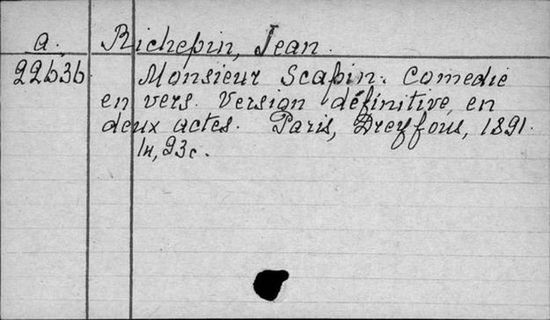 a. Richepin, Jean.
22636. Monsieur Scapin. Comedie
en vers. Version définitive en
deux actes. Paris, Dreyfous, 1891.
93c.